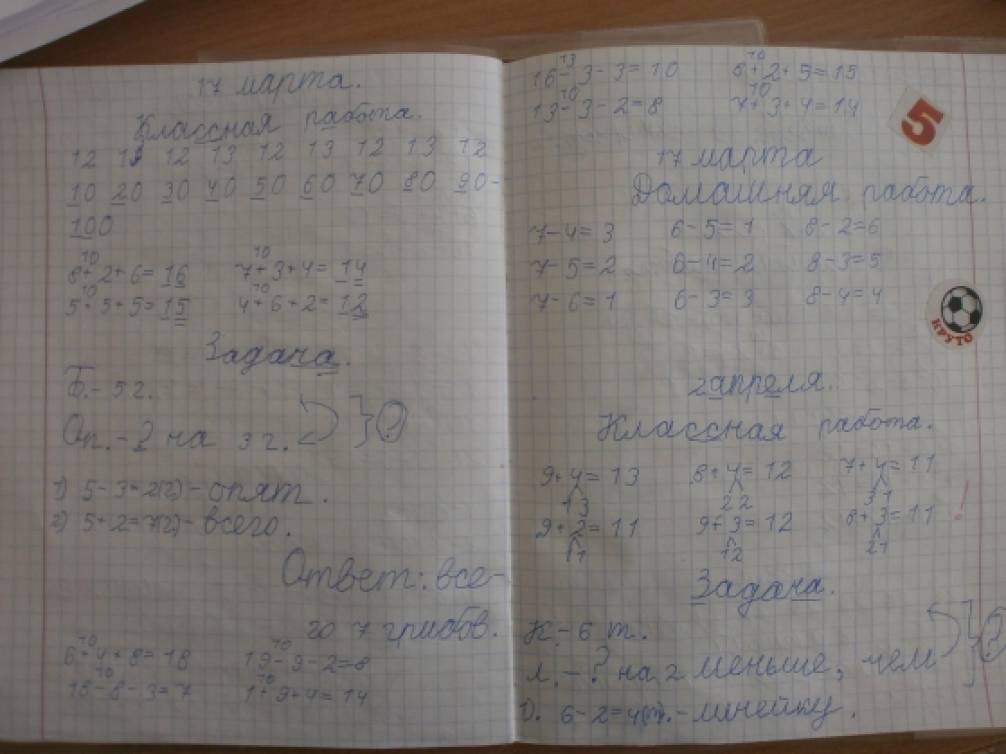 17 марта.
Классная работа.
12 13 12 13 12 13 12 13 12
10 20 30 40 50 60 70 80 90
100
10 10
8+2+6=16 7+3+4=14
10 10
5+5+5=15 4+6+2=12
Задача.
Б.- 5 г.
Оп.- ? на 3 г. ?
1) 5-3=2(г)-опят.
2) 5+2=7(г)-всего.
Ответ: все-
го 7 грибов.
10 10
6+4+8=18 19-9-2=8
10 10
18-8-3=7 1+9+4=14
13 10
16-3-3=10 8+2+5=15
10 10
13-3-2=8 7+3+4=14
5
17 марта
Домашняя работа.
7-4=3 6-5=1 8-2=6
7-5=2 6-4=2 8-3=5
7-6=1 6-3=3 8-4=4
КРУТО
2 апреля.
Классная работа.
9+4=13 8+4=12 7+4=11
1 3 2 2 3 1
9+2=11 9+3=12 8+3=11 !
1 1 1 2 2 1
Задача.
К - 6 т.
Л. - ? на 2 меньше, чем ?
1). 6-2=4(т).-линейку.